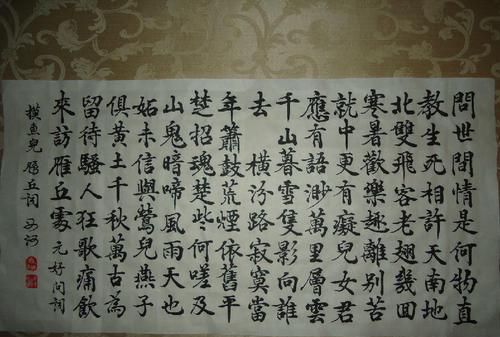 問世間情是何物直
教生死相許天南地
北雙飛客老翅幾回
寒暑歡樂趣離別苦
就中更有癡兒女君
應有語渺萬里層雲
千山暮雪隻影向誰
去 橫汾路寂寞當
年簫鼓荒煙依舊平
楚招魂楚些何嗟及
山鬼暗啼風雨天也
妬未信與鶯兒燕子
俱黃土千秋萬古為
留待騷人狂歌痛飲
來訪雁丘處 元好問詞
摸魚兒 雁丘詞